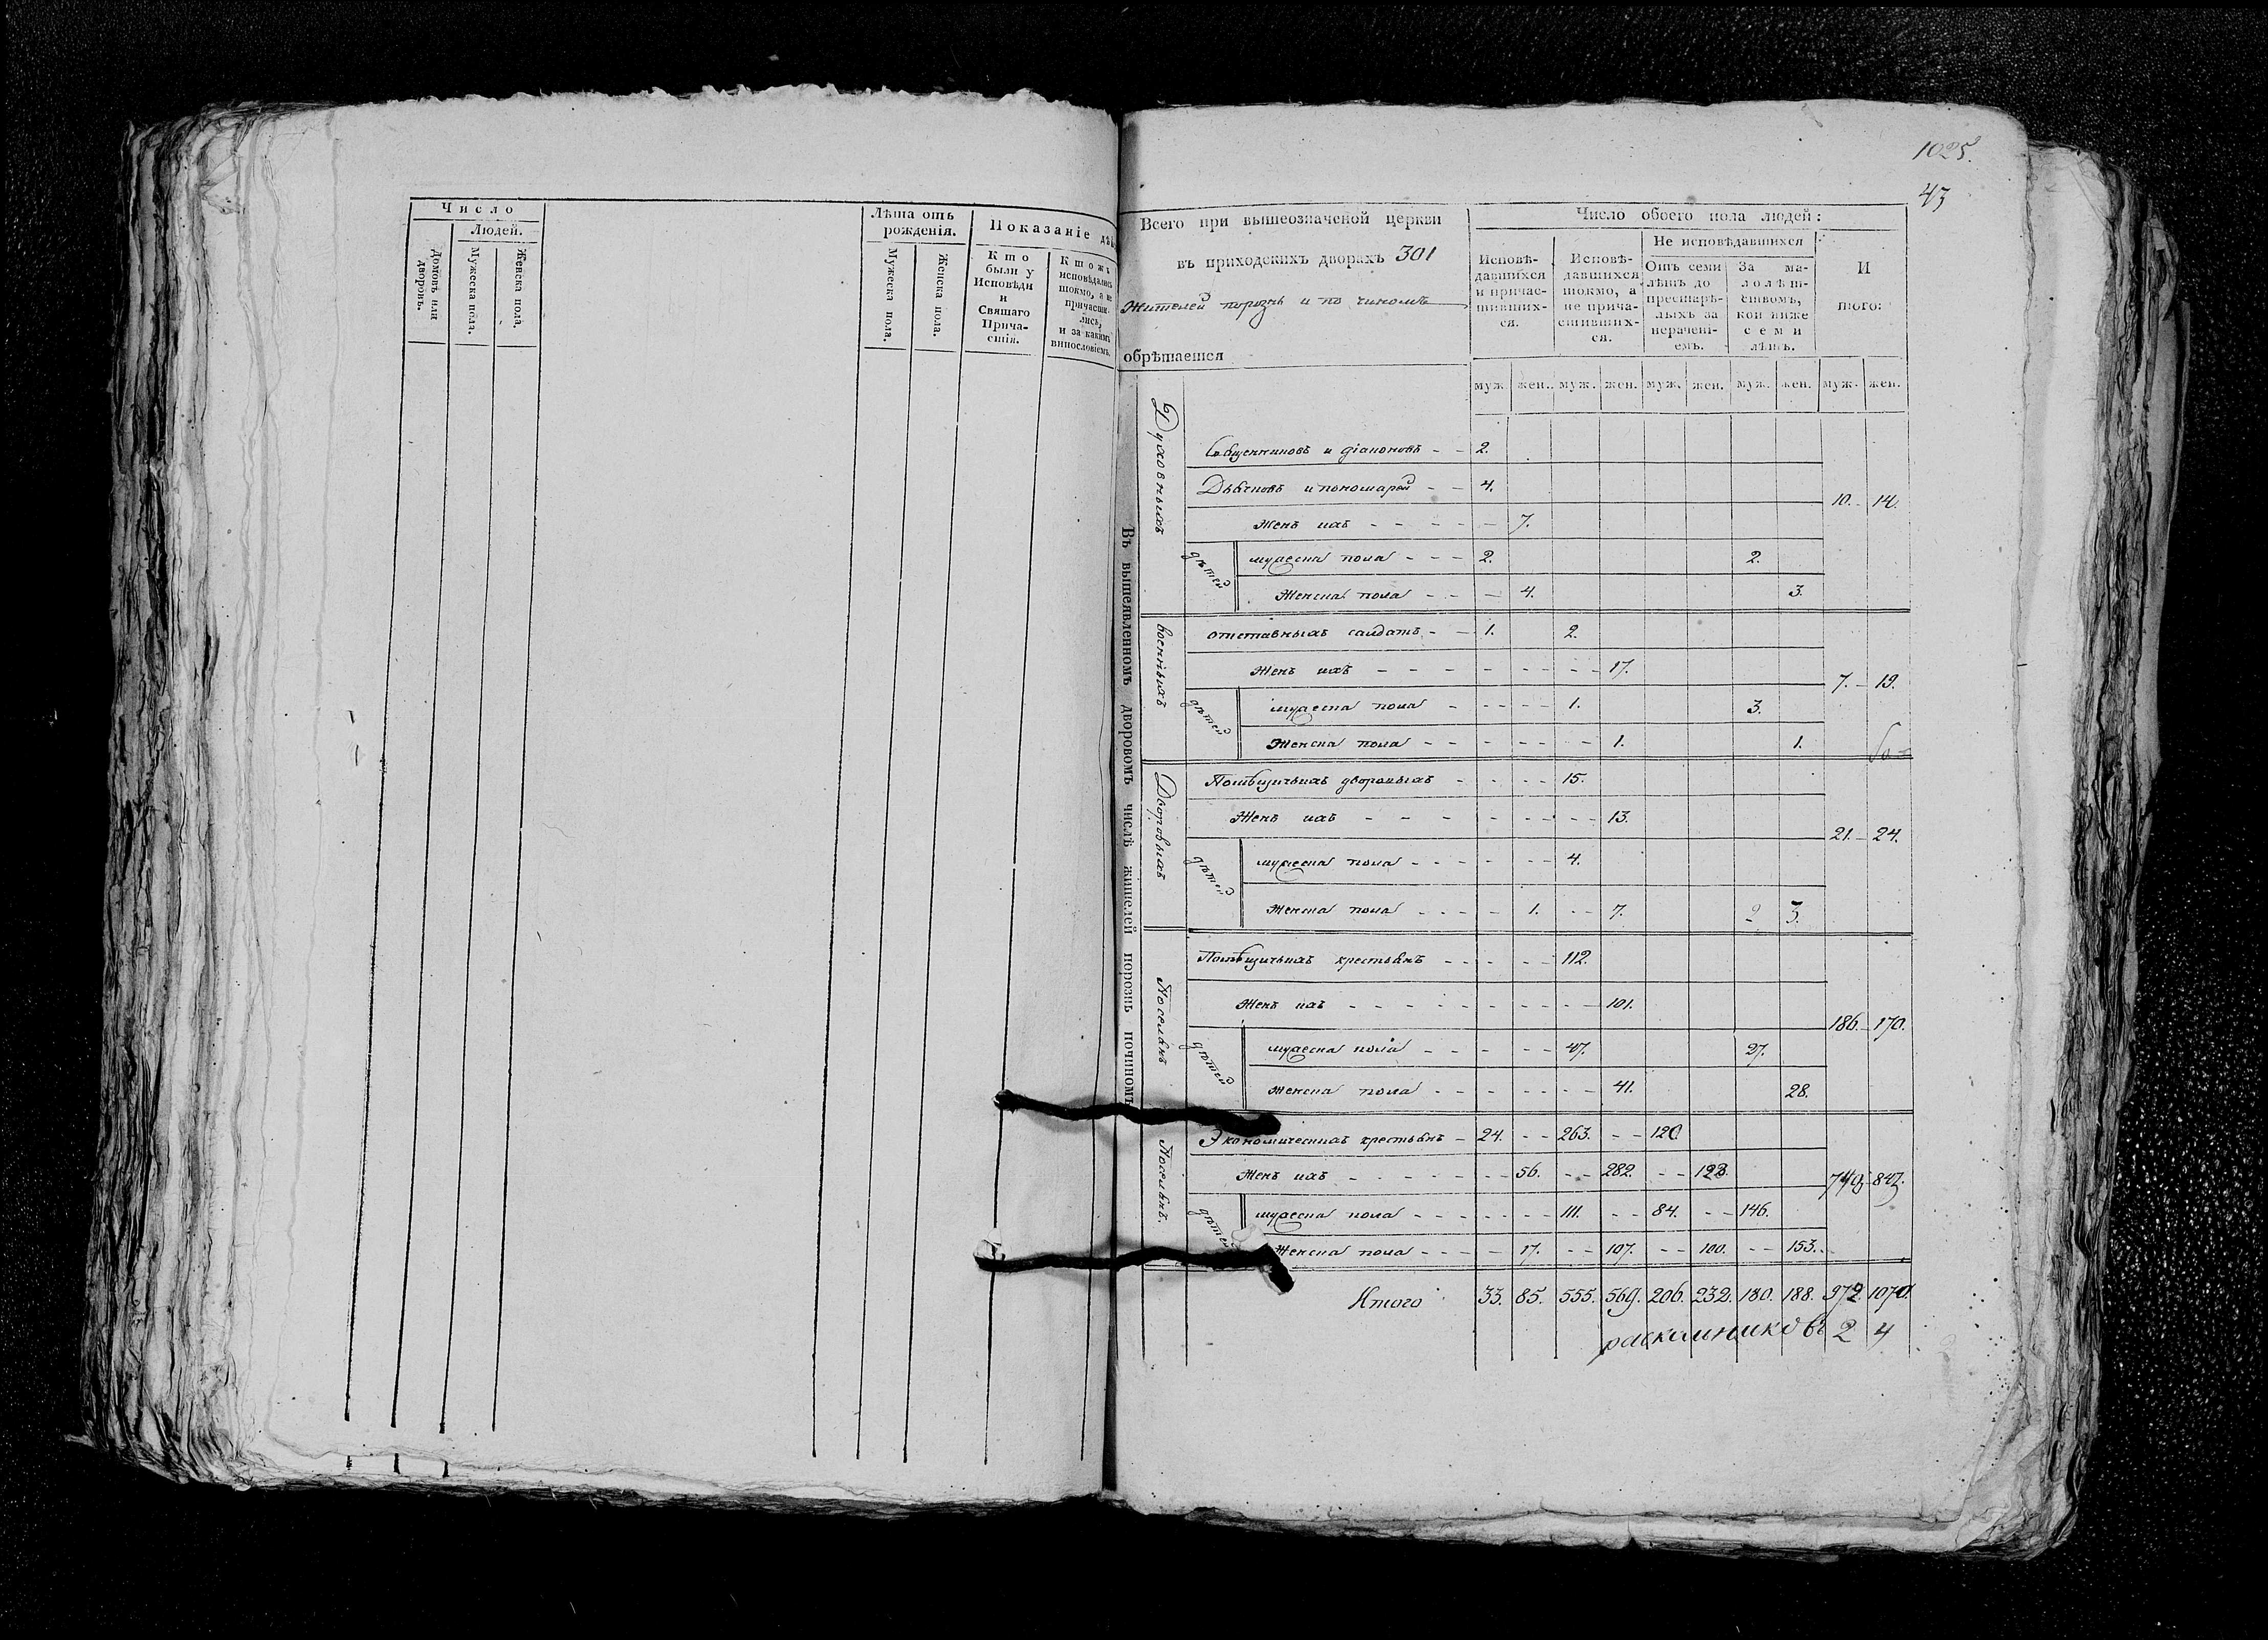 Число
Людей.
Домовъ или дворовъ.
Мужеска пола.
Женска пола.
Лѣта отъ рожденія.
Мужеска пола.
Женска пола.
Показаніе дѣй
Кто были у Исповѣди и Святаго Причастія.
Ктожъ исповѣдались токмо, а не причастились, и за какимъ винословіемъ.
1025.
43
Всего при вышеозначеной церкви
въ приходскихъ дворахъ 301
Жителей порознь и по чиномъ
обрѣтается
Число обоего пола людей:
Исповѣдавшихся и причастившихся.
Исповѣдавшихся токмо, а не причастившихся.
Не исповѣдавшихся
Отъ семи лѣтъ до престарѣлыхъ за нераченіемъ.
За малолѣтствомъ, кои ниже семи лѣтъ.
И того:
муж. жен. муж. жен. муж. жен. муж. жен. муж. жен.
Въ вышеявленномъ дворовомъ числѣ жителей порознь починомъ
Духовныхъ
Священниковъ и діаконовъ - - 2.
Дьячковъ и пономарей - - 4.
10. - 14.
Женъ ихъ - - - - - 7.
дѣтей
мужеска пола - - - 2. 2.
Женска пола - - - 4. 3.
военныхъ
отставныхъ салдатъ - - 1. 2.
Женъ ихъ - - - - - - 17.
7. - 19.
дѣтей
мужеска пола - - - - 1. 3.
Женска пола - - - - - - 1. 1.
Дворовыхъ
Помѣщичьихъ дворовыхъ - - - - 15.
Женъ ихъ - - - - - - - - 13.
21. - 24.
дѣтей
мужеска пола - - - - - - 4.
Женска пола - - - - - 1. - - 7. 2 3.
Поселянъ
Помѣщичьихъ крестьянъ - - - - - 112.
Женъ ихъ - - - - - - - - 101.
186. - 170.
дѣтей
мужеска пола - - - - - 47. 27.
Женска пола - - - - - - 41. 28.
Поселянъ.
Экономическихъ крестьянъ - 24. - - 263. - - 120
Женъ ихъ - - - - - - 56. - - 282. - - 132.
748. - 847.
дѣтей
мужеска пола - - - - - - - 111. - - 84. - - 146.
Женска пола - - - - - 17. - - 107. - - 100. - - 153.
Итого 33. 85. 555. 569. 206. 232. 180. 188. 972. 1070.
раскольниковъ 2 4